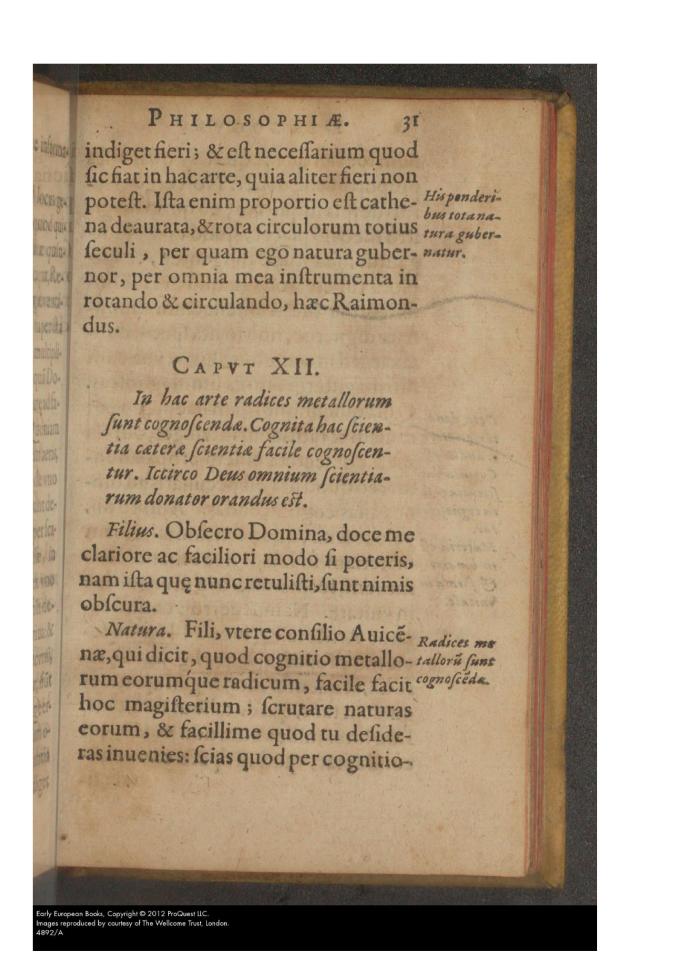 PHILOSOPHIÆ. 31
indiget fieri; & est necessarium quod
sic fiat in hac arte, quia aliter fieri non
potest. Ista enim proportio est cathe-
na deaurata, & rota circulorum totius
seculi, per quam ego natura guber-
nor, per omnia mea instrumenta in
rotando & circulando, hæc Raimon-
dus.
His ponderi-
bus tota na-
tura guber-
natur.
CAPVT XII.
In hac arte radices metallorum
sunt cognoscendæ. Cognita hac scien-
tia cæteræ scientiæ facile cognoscen-
tur. Iccirco Deus omnium scientia-
rum donator orandus est.
Filius. Obsecro Domina, doce me
clariore ac faciliori modo si poteris,
nam ista quę nunc retulisti, sunt nimis
obscura.
Natura. Fili, vtere consilio Auicē-
næ, qui dicit, quod cognitio metallo-
rum eorumq́ue radicum, facile facit
hoc magisterium; scrutare naturas
eorum, & facillime quod tu deside-
ras inuenies: scias quod per cognitio-
Radices me
tallorũ sunt
cognoscēdæ.
Early European Books, Copyright © 2012 ProQuest LLC.
Images reproduced by courtesy of The Wellcome Trust, London.
4892/A